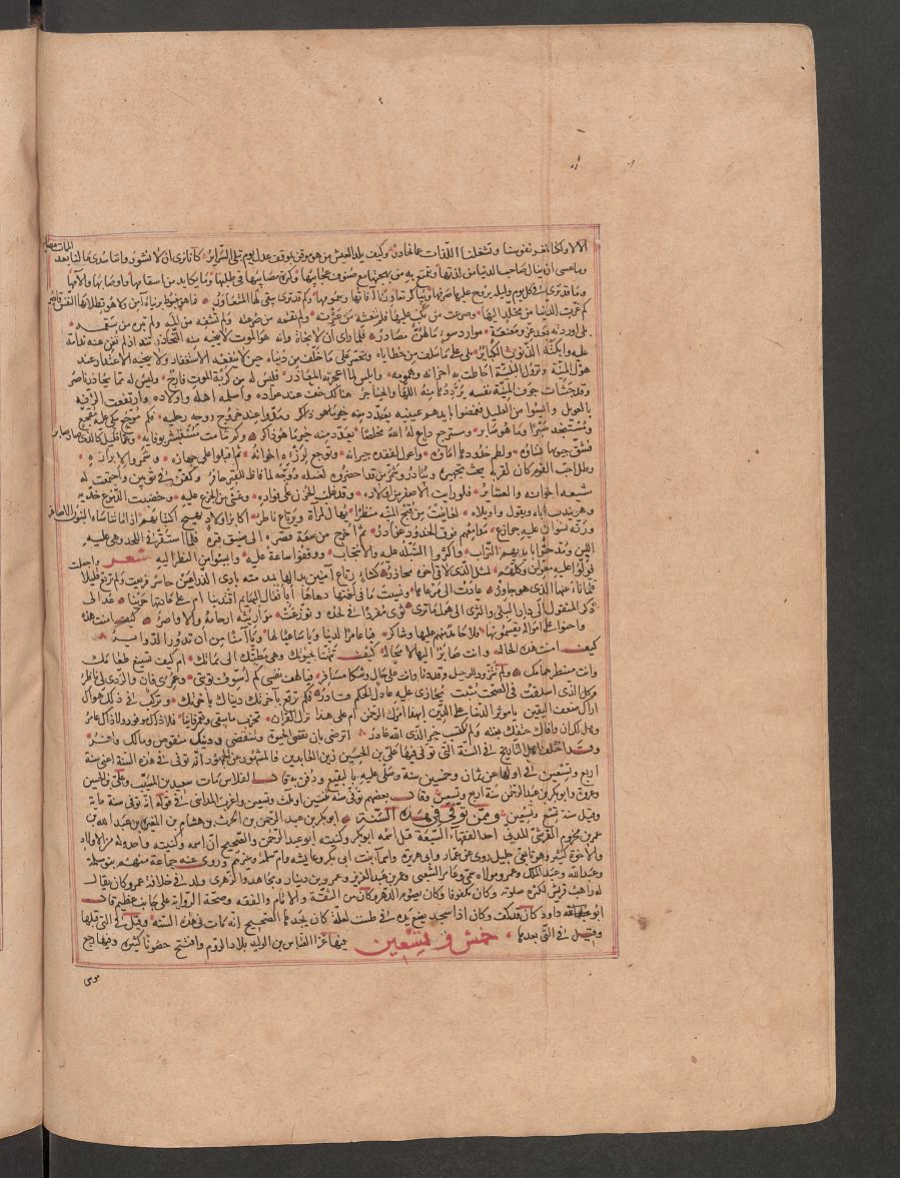 الا ولكنا نغر نفوسنا وتشغلنا اللذات عما نحاذر وكيف يلذ العيش من هو موقن بموقف عدل يوم تبلى السرائر كأنا نرى ان لا نشور واننا سدى ما لنا بعد الممات مصاير
وما عسى ان ينال صاحب الدنيا من لذتها ويتمتع به من بهجتها مع صنوف عجايبها وكثرة مصايبها في طلبها وما يكابد من اسقامها واوصابها وآلامها
وما قد ترى في كل يوم وليلة يروح علينا صرفها ويباكر تعاورنا آفاتها وهمومها وكم قد ترى يبقى لها المتعاور
كم غرت الدنيا من مخلد اليها وصرعت من مكب عليها فلم تنعشه من عثرته ولم تنقذه من صرعته ولم تشفه من المه ولم تبره من سقمه
بلى اوردته بعد عز ومنعة موارد سوء ما لهن مصادر فلما راى ان لا نجاة وانه هو الموت لا ينجيه منه التحاذر تندم اذ لم تغن عنه ندامة
عليه وابكته الذنوب الكباير بكى على ما سلف من خطاياه وتحسر على ما خلف من دنياه حين لا ينفعه الاستغفار ولا ينجيه الاعتذار عند
هول المنية ونزول البلية احاطت به احزانه وهمومه وابلس لما اعجزته المعاذر فليس له من كربة الموت فارج وليس له مما يحاذر ناصر
وقد جشأت خوف المنية نفسه يرددها منه اللها والحناجر هنالك خف عنه عواده واسلمه اهله واولاده وارتفعت الرنة
بالعويل وايسوا من العليل فغمضوا بايديهم عينيه ومدوا عند خروج روحه رجليه فكم موجع يبكي عليه مفجع
ومستنجد صبرا وما هو صابر ومسترجع داع له الله مخلصا يعدد منه خير ما هو ذاكر وكم شامت مستبشر بوفاته وعما قليل كالذي صار صاير
فشقت جيوبها نساؤه ولطمت خدودها اماؤه واعول لفقده جيرانه وتوجع لرزئه اخوانه ثم اقبلوا على جهازه وشمروا لابرازه
وظل احب القوم كان لقربه يحث تجهيزه ويبادر وشمر من قد احضروه لغسله ووجه لما فاظ للقبر حافر وكفن في ثوبين واجتمعت له
شيعه اخوانه والعشاير فلو رايت الاصغر من اولاده وقد غلب الحزن على فواده وغشي من الجزع عليه وخضبت الدموع خديه
وهو يندب اباه ويقول واويلاه لعاينت من قبح المنية منظرا يهال لمرآة ويرتاع ناظر اكابر اولاد يهيج اكتيابهم اذا ما تناساه البنون الاصاغر
ورنة نسوان عليه جوازع مدامعهم فوق الخدود غوازر ثم اخرج من سعة قصره الى ضيق قبره فلما استقر في اللحد وهي عليه
اللبن وقد حثوا بايديهم التراب واكثروا التلدد عليه والانتحاب ووقفوا ساعة عليه وايسوا من النظر اليه شعر
فولوا عليه معولين وكلهم لمثل الذي لاقى اخوه محاذر
ذكر المنقول الى دار البلى والثرى الى هول ما ترى ثوى مفردا في لحده وتوزعت مواريثه ارحامه والاواصر
واحنوا على امواله يقسمونها فلا حامد منهم عليها وشاكر فيا عامر الدنيا ويا ساعيا لها ويا آمنا من ان تدور الدوائر كيف امنت هذه
كيف امنت هذه الحاله وانت صاير اليها لا محاله كيف تهنا بحياتك وهي مطيتك الى مماتك ام كيف تسيغ طعامك
وانت منتظر حمامك
وكل الذي اسلفت في الصحف مثبت يجازي عليه عادل الحكم قادر فكم ترقع بآخرتك دنياك وتركب في ذلك هواك
اراك ضعيف اليقين يا موثر الدنيا على الدين ابهذا امرك الرحمن ام على هذا نزل القران تخرب ما يبقى وتعمر فانيا فلا ذاك موفور ولا ذاك عامر
وهل لك ان وافاك حتفك بغتة ولم تكتسب خيرا لدى الله عاذر اترضى بان تفنى الحياة وتنقضي ودينك منقوص ومالك وافر
وقد اختلف اهل التاريخ في السنة التي توفي فيها علي بن الحسين زين العابدين فالمشهور عن الجمهور انه توفي في هذه السنة اعني سنة
اربع وتسعين في اولها عن ثمان وخمسين سنة وصلي عليه بالبقيع ودفن به قال الفلاس مات سعيد بن المسيب وعلي بن الحسين
وعروة وابو بكر بن عبد الرحمن سنة اربع وتسعين وقال بعضهم توفي سنة ثنتين اوثلث وتسعين واغرب المدايني في قوله انه توفي سنة ماية
وقيل سنة تسع وتسعين وممن توفي في هذه السنة ابو بكر بن عبد الرحمن بن الحرث بن هشام بن المغيرة بن عبد الله بن
عمر بن مخزوم القرشي المدني احد الفقهاء السبعة قيل اسمه ابو بكر وكنيته ابو عبد الرحمن والصحيح ان اسمه وكنيته واحد وله من الاولاد
والاخوة كثير وهو تابعي جليل روى عن عمار وابي هريرة واسما بنت ابي بكر وعايشه وام سلمة وغيرهم وروى عنه جماعة منهم بنوه سلمة
وعبد الله وعبد الملك وعمر ومولاه سمي وعامر الشعبي وعمر بن عبد العزيز وعمرو بن دينار ومجاهد والزهري ولد في خلافة عمر وكان يقال
له راهب قريش لكثرة صلوته وكان مكفوفا وكان يصوم الدهر وكان من الثقة والامانة والفقه وصحة الرواية على جانب عظيم قال
ابو داود كان قد كف وكان اذا سجد يضع يده في طست لعلة كان يجدها الصحيح انه مات في هذه السنة وقيل في التي قبلها
وقيل في التي بعدها خمس وتسعين فيها غزا العباس بن الوليد بلاد الروم وافتتح حصونا كثيرة وفيها فتح
موسى